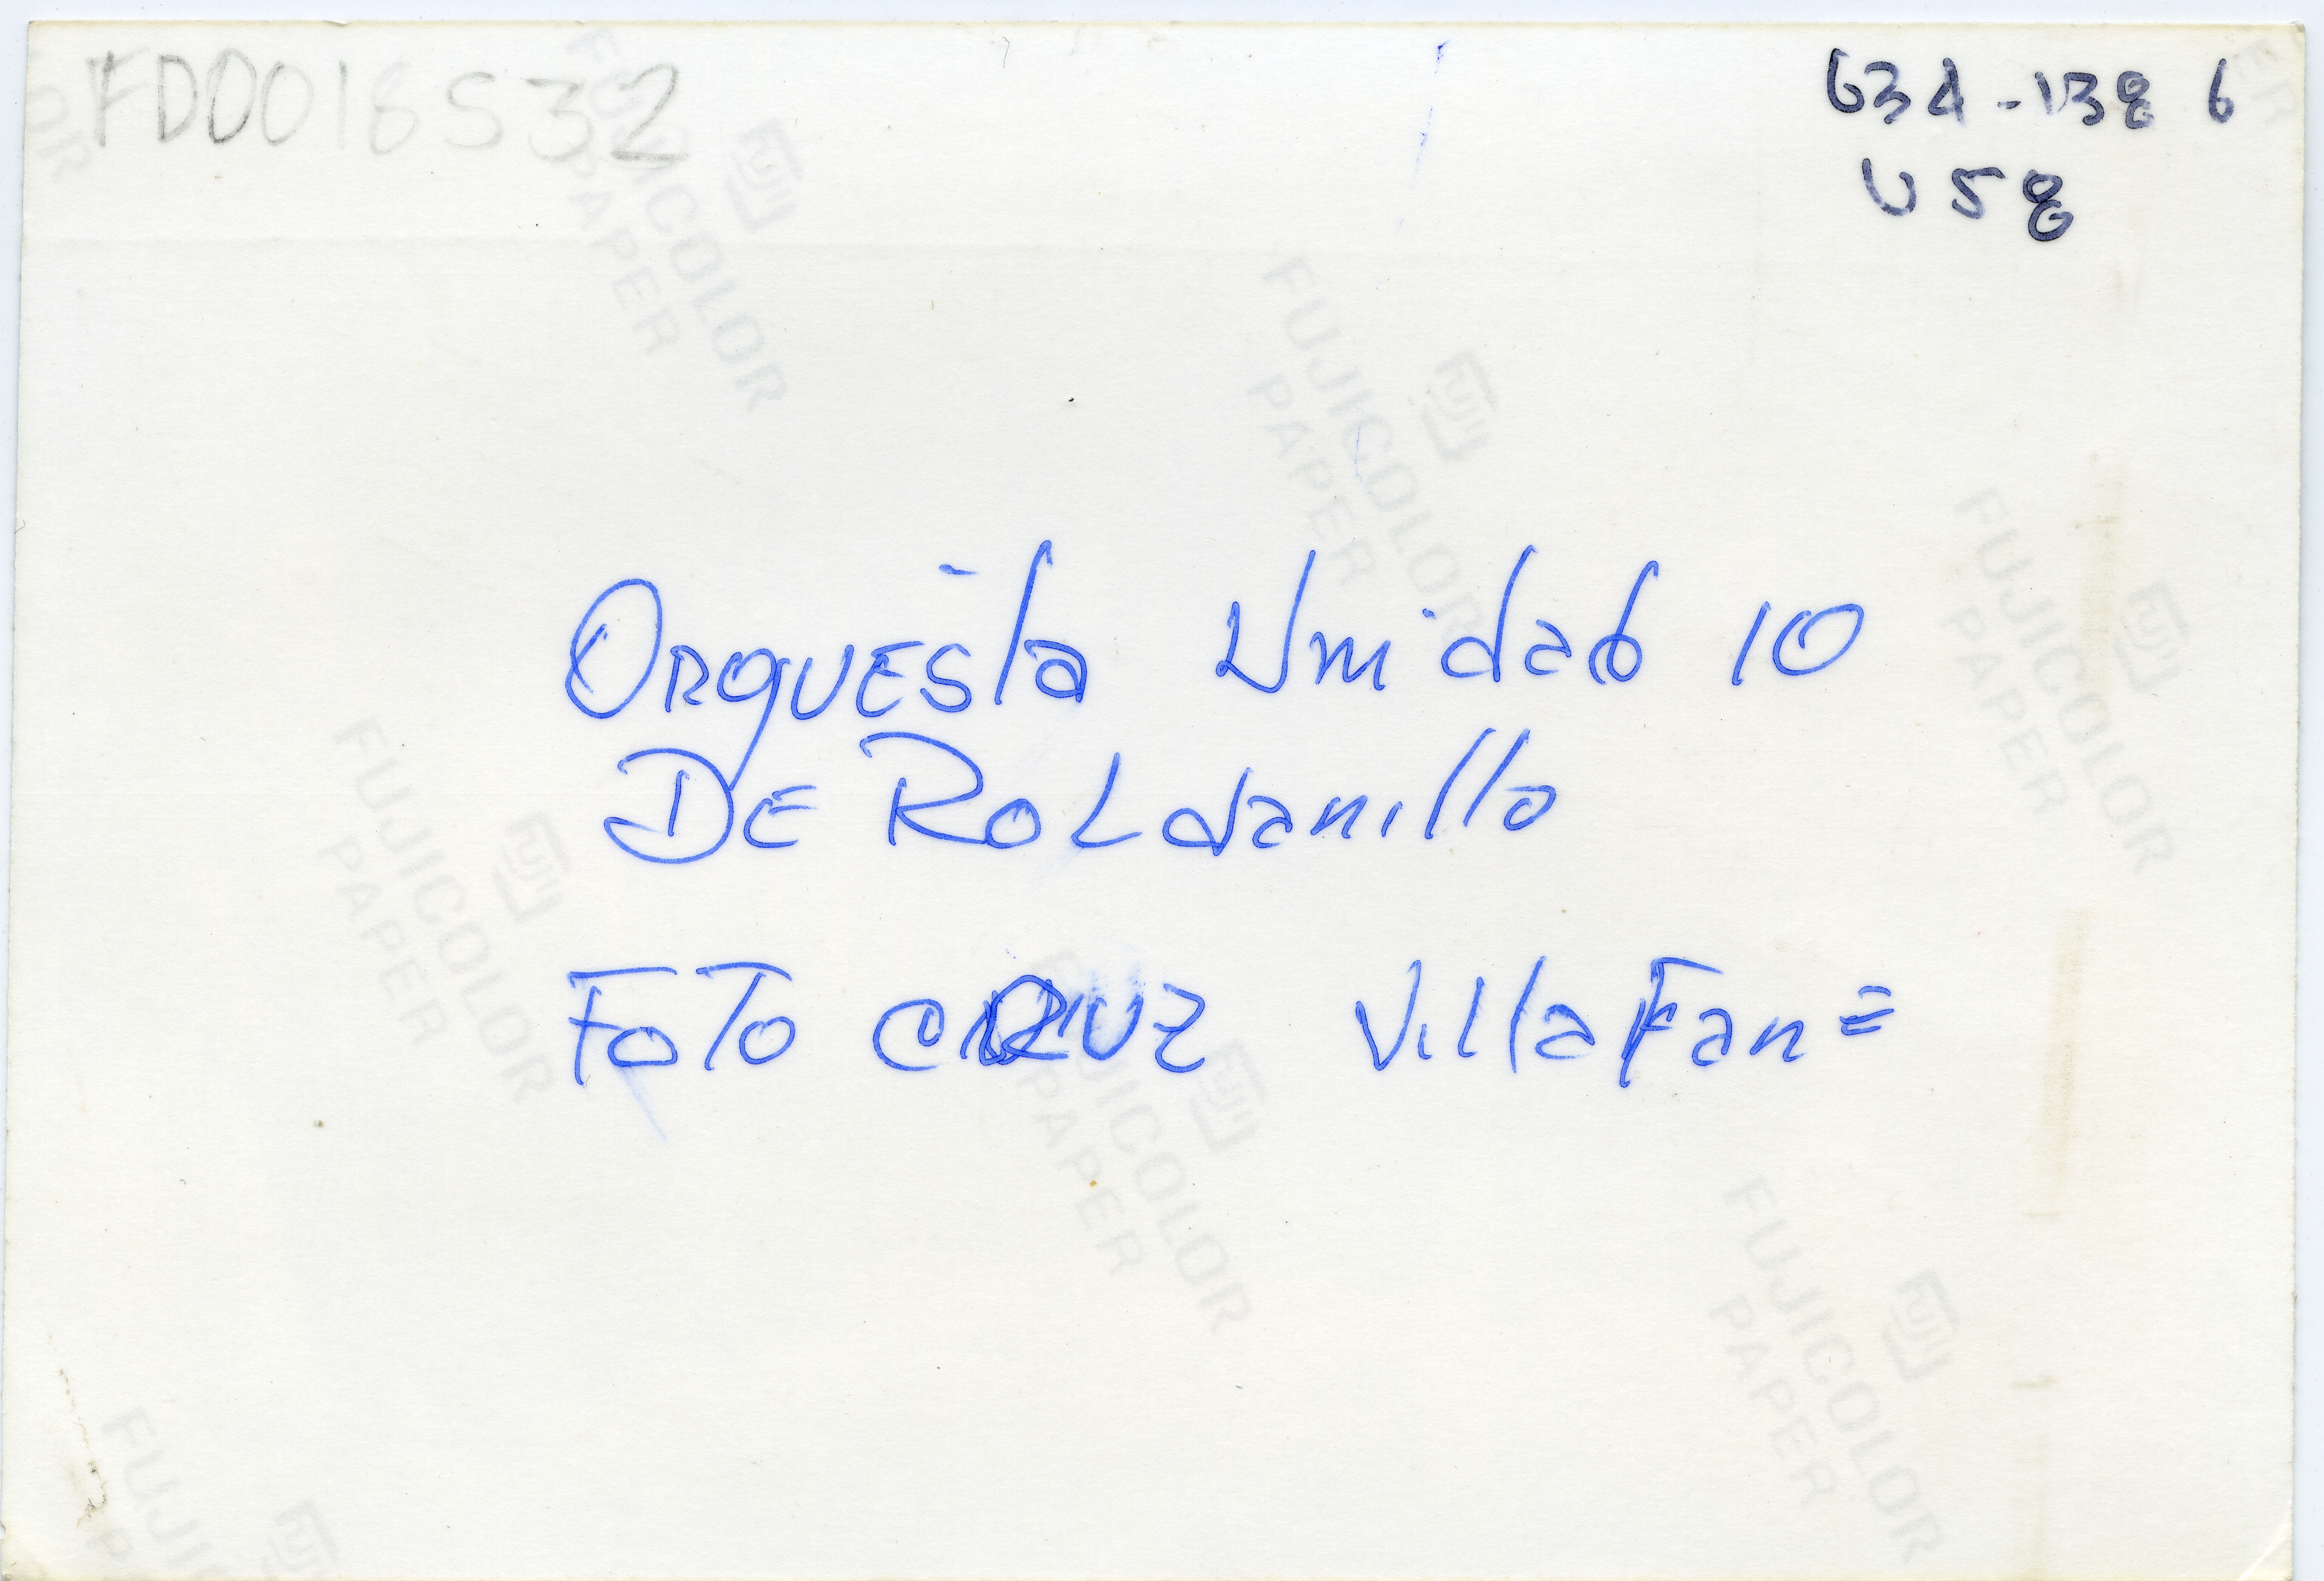 FD0018532
634-138 6
U58
Orquesta Unidad 10
De Roldanillo
Foto Cruz Villafañe
FUJICOLOR
PAPER
FUJI